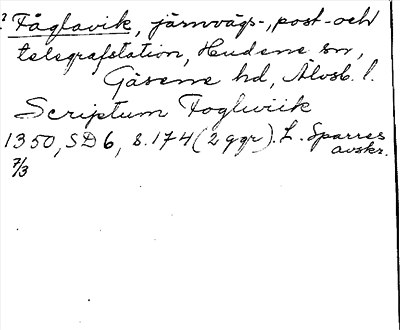 ? Fåglavik, järnvägs-, post- och
telegrafstation, Hudene sn,
Gäsene hd, Älvsb. l.
Scriptum Foglwiik
1350, SD 6, s. 174 (2 ggr). L. Sparres
avskr.
7/3